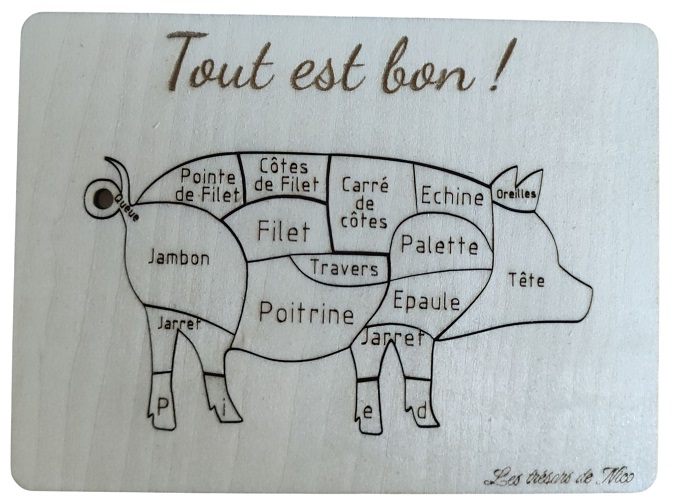 Tout est bon !
Pointe
de Filet
Côtes
de Filet
Carré
de
côtes
Echine
Oreilles
Queue
Filet
Palette
Jambon
Travers
Tête
Poitrine
Epaule
Jarret
Jarret
P i e d
Les trésors de Nico